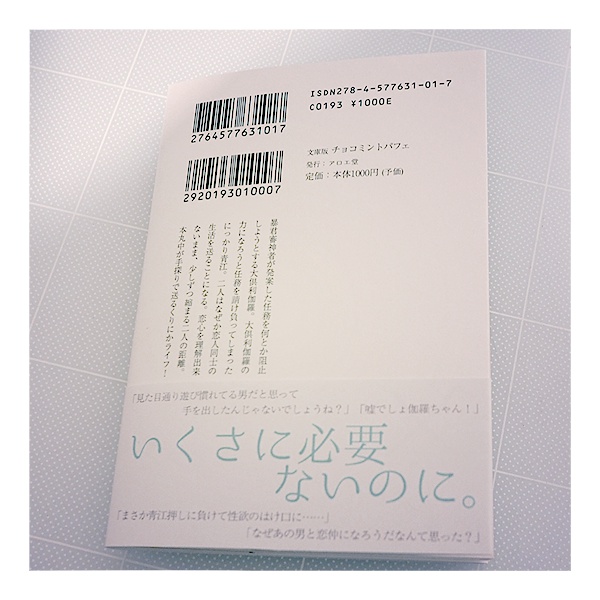 ISDN278-4-577631-01-7
C0193 ¥1000E
2764577631017
2920193010007
文庫版 チョコミントパフェ
発行：アロエ堂
定価：本体1000円(予価)
暴君審神者が発案した任務を何とか阻止
しようとする大倶利伽羅。大倶利伽羅の
力になろうと任務を請け負ってしまった
にっかり青江。二人はなぜか恋人同士の
生活を送ることになる。恋心を理解出来
ないまま、少しずつ縮まる二人の距離。
本丸中が手探りで送るくりにかライフ！
「見た目通り遊び慣れてる男だと思って
手を出したんじゃないでしょうね？」「嘘でしょ伽羅ちゃん！」
いくさに必要
ないのに。
「まさか青江押しに負けて性欲のはけ口に……」
「なぜあの男と恋仲になろうだなんて思った？」